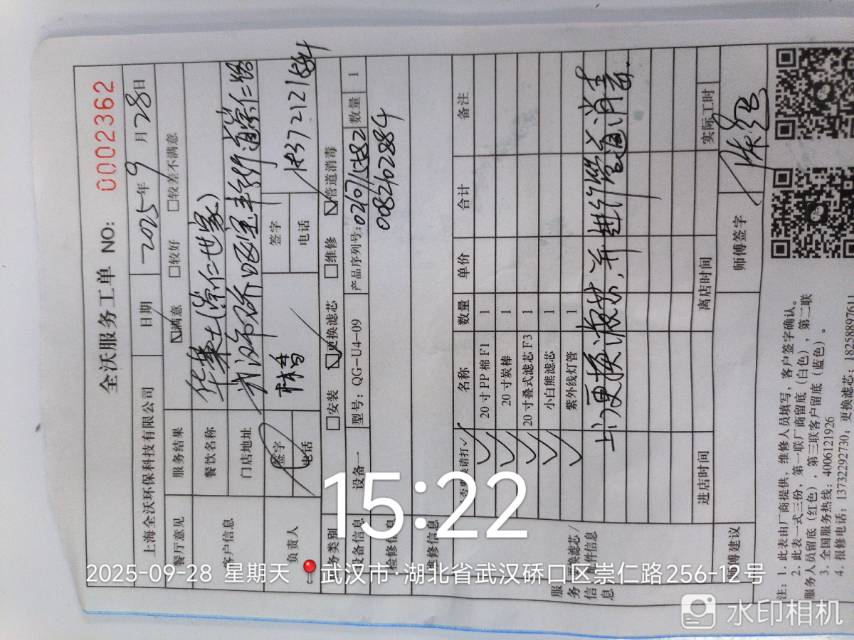 全沃服务工单 NO: 0002362
上海全沃环保科技有限公司 日期 2025年9月28日
餐厅意见 服务结果 ☑满意 □较好 □较差不满意
客户信息 餐饮名称 华莱士(崇仁世家)
门店地址
负责人 签字 签字
电话 电话 18372121884
服务类别 □安装 ☑更换滤芯 □维修 ☑管道消毒
设备信息 设备一 型号: QG-U4-09 产品序列号: 数量 1
0082102884
检修信息
维修信息
更换滤芯/配件信息
名称 数量 单价 合计 备注
✓ 20寸PP棉F1 1
✓ 20寸炭棒 1
✓ 20寸叠式滤芯F3 1
✓ 小白熊滤芯 1
✓ 紫外线灯管 1
更换滤芯,并进行管道消毒.
服务信息 进店时间 离店时间 实际工时
师傅建议 师傅签字
注: 1. 此表由厂商提供,维修人员填写,客户签字确认。
2. 此表一式三份,第一联厂商留底(白色),第二联
服务人员留底(红色),第三联客户留底(蓝色)。
3. 全国服务热线: 4006121926
4. 报修电话: 13732292730; 更换滤芯: 18258897611
15:22
2025-09-28 星期天 武汉市·湖北省武汉硚口区崇仁路256-12号
水印相机